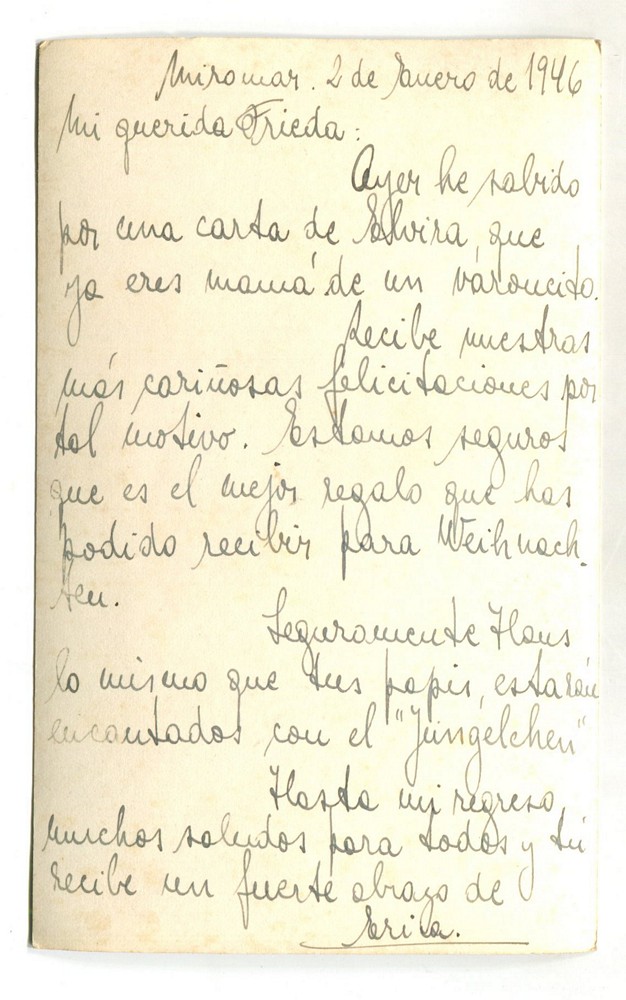 Miramar. 2 de Enero de 1946
Mi querida Frieda:
Ayer he sabido
por una carta de Elvira, que
ya eres mamá de un varoncito.
Recibe nuestras
más cariñosas felicitaciones por
tal motivo. Estamos seguros
que es el mejor regalo que has
podido recibir para Weihnach-
ten.
Seguramente Hans
lo mismo que tus papis, estarán
encantados con el "Jüngelchen"
Hasta mi regreso,
muchos saludos para todos y tú
recibe un fuerte abrazo de
Erica.